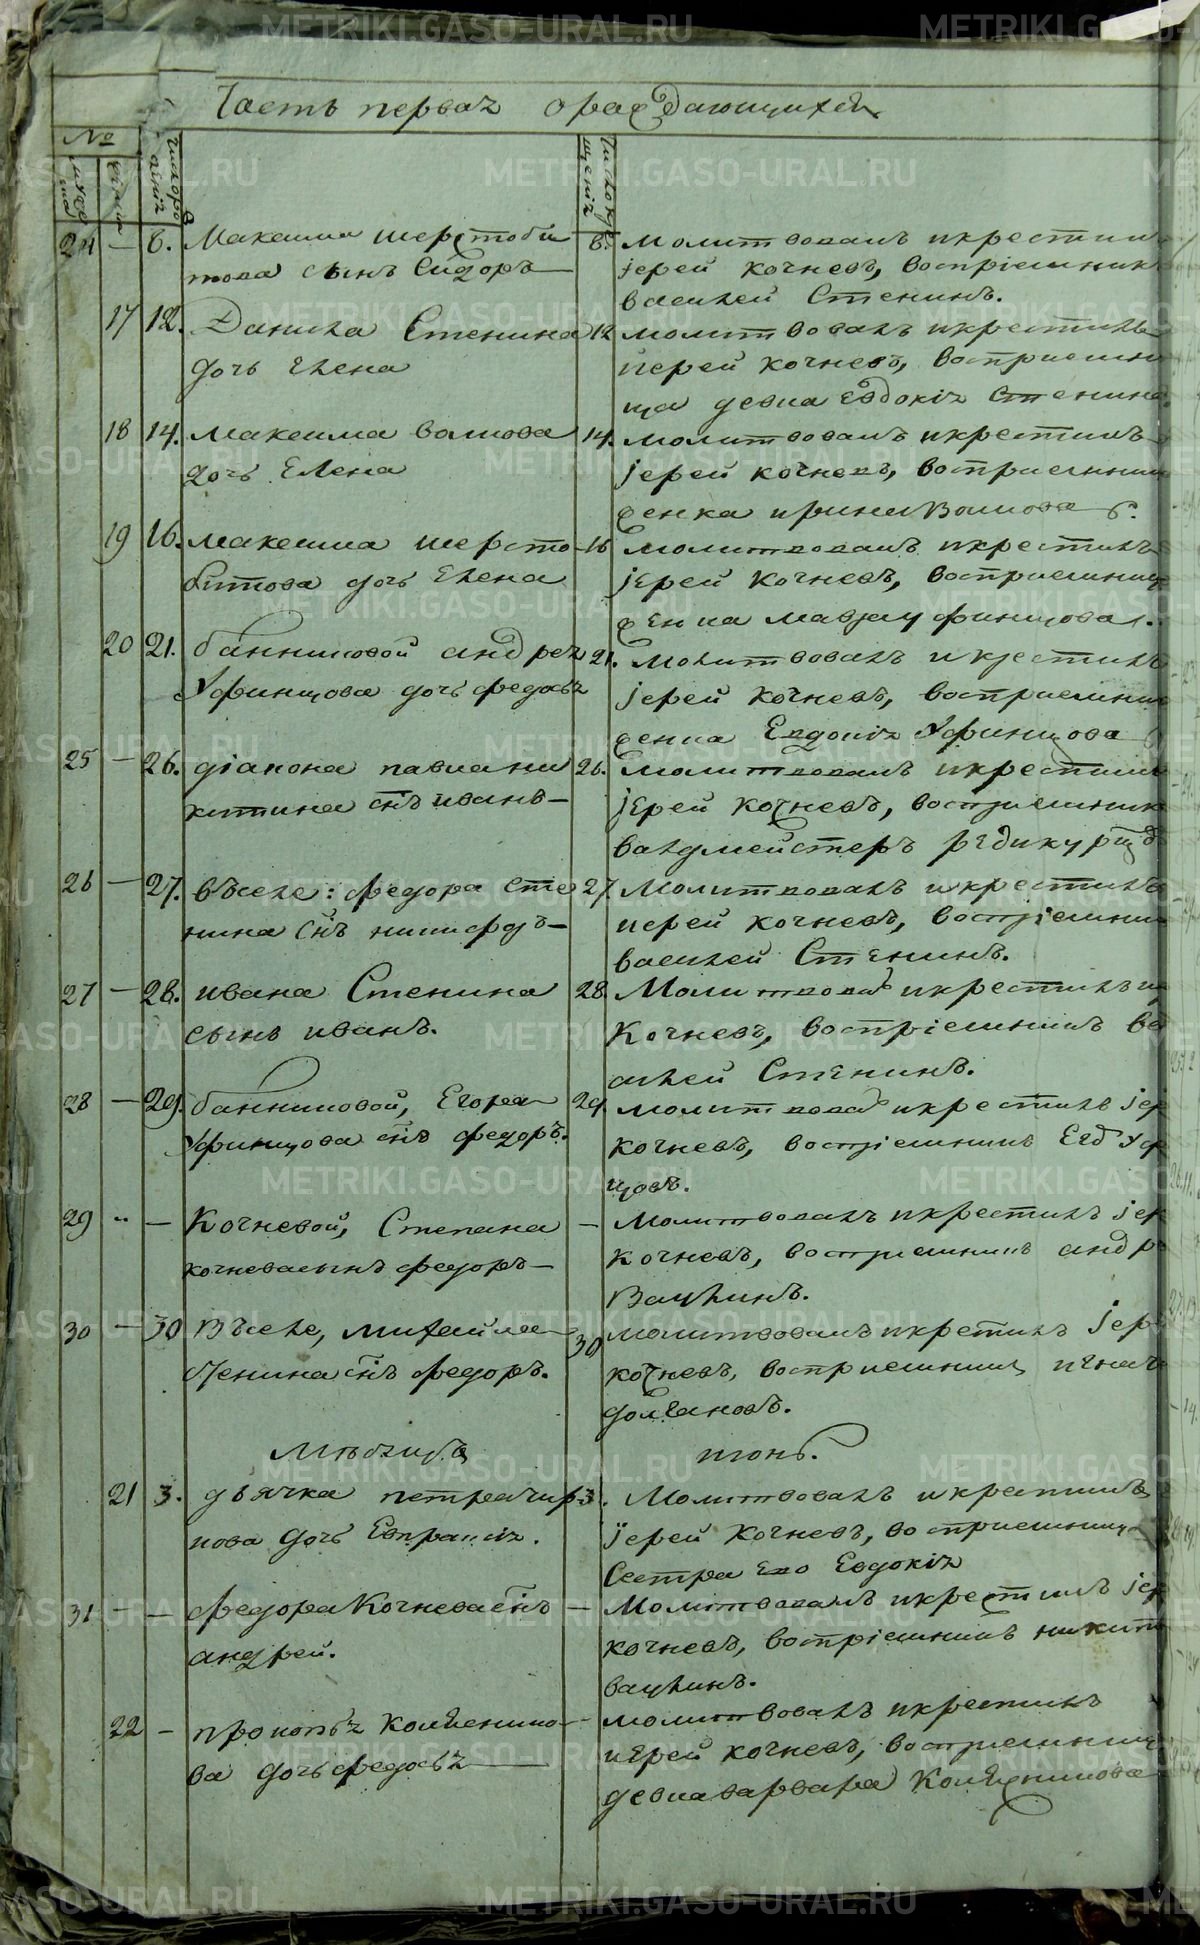 METRIKI.GASO-URAL.RU
Часть первая о раждающихся
№
24 — 8. Максима Шерстоби
това сынъ Сидоръ
8. молитвовалъ и крестилъ
іерей Кочневъ, воспріемник
василей Стенинъ.
17 12. Данила Стенина
дочь Елена
12 молитвовалъ и крестилъ
иерей Кочневъ, восприемни
ца девка Евдокія Стенина
18 14. Максима
дочь Елена
14. молитвовалъ и крестилъ
іерей Кочневъ, восприемни
19 16. Максима Шерсто
битова дочь Елена
16 молитвовалъ и крестилъ
іерей Кочневъ, восприемниц
20 21. Андрея
Уфинцова дочь Федосья
21. молитвовалъ и крестилъ
іерей Кочневъ, восприемни
Евдокія Уфинцова
25 — 26. діакона Павла Ни
китина снъ Иванъ
26. молитвовалъ и крестилъ
іерей Кочневъ, восприемник
валдмейстеръ
26 — 27. въ селе: Федора Сте
нина снъ
27. молитвовалъ и крестилъ
иерей Кочневъ, воспріемни
василей Стенинъ.
27 — 28. Ивана Стенина
сынъ Иванъ.
28. Молитвова и крестилъ
Кочневъ, воспріемникъ Ва
силей Стенинъ.
28 — 29. Егора
Уфинцова снъ Федоръ.
29. молитвова и крестилъ іер
Кочневъ, воспріемникъ Уф
цовъ.
29 " — Кочневой, Степана
Кочнева сынъ Федоръ
— Молитвовалъ и крестилъ іер
Кочневъ, восприемникъ Андр
30 — 30 Въ селе, Михайла
Стенина снъ Федоръ.
30 молитвовалъ и крестилъ іер
Кочневъ, восприемник Игнат
Долгановъ.
Мѣсяцъ июнь.
21 3. дьячка Петра
нова дочь Евпраксія.
3. Молитвовалъ и крестилъ
іерей Кочневъ, восприемниц
Сестра ево Евдокія
31 — — Федора Кочнева снъ
Андрей.
— молитвовалъ и крестилъ іер
Кочневъ, воспріемникъ Никит
22 — Прокопья
ва дочь Федосья
— молитвовалъ и крестилъ
иерей Кочневъ, восприемниц
девка Варвара